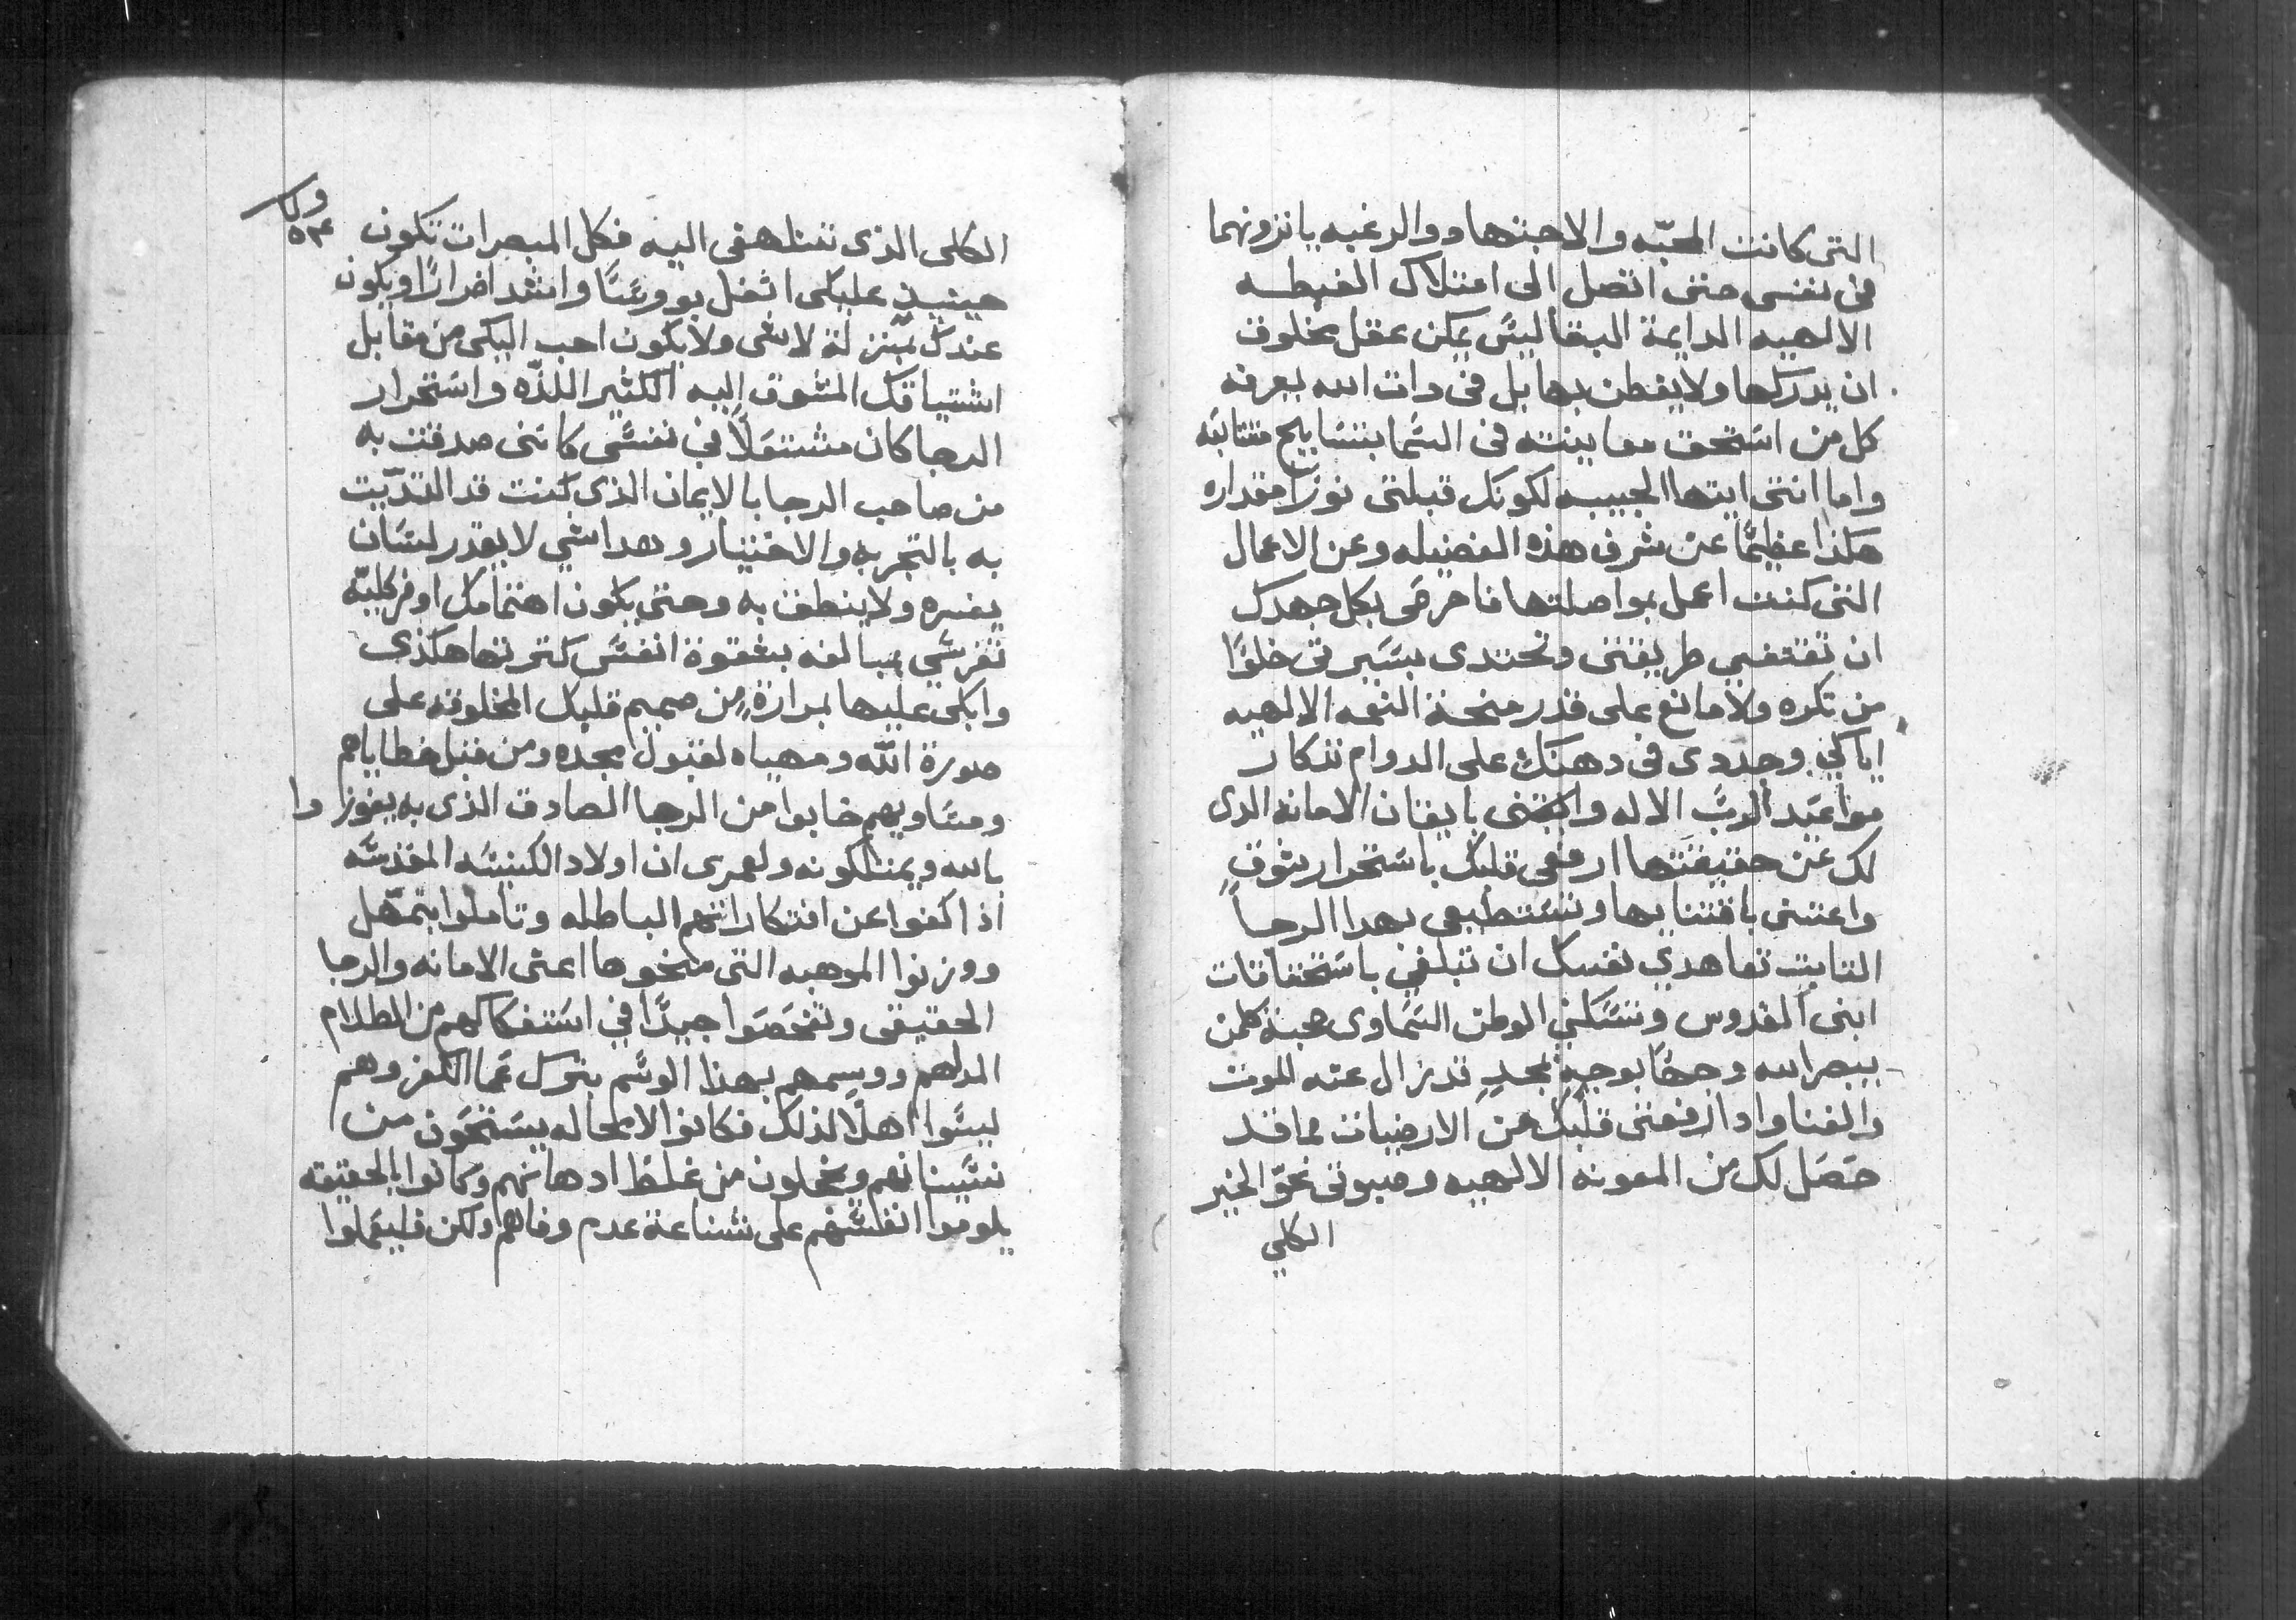 التى كانت المحبّه والاجتهاد والرغبه يانزونهما
فى نفسى حتى اتصل الى امتلاك الغبطه
الالهيه الدايمة البقا ليسَ يمكن عقل مخلوق
ان يدركها ولا يفطن بها بل فى دات الله يعرفه
كل من استحق معاينته فى السَما بتسَابيح متتابعَه
واما انتى ايتها الحبيبه لكونك قبلتى نورًا مقداره
هكذا عظيمًا عن شرف هذه الفضيله وعن الاعمال
التى كنت اعمل بمواصلتها فاحرصَى بكل جهدك
ان تقتفيي طريقتى وتحتدى بسَيرتى خلوًا
من تكره ولا مانع على قدر منحة النعمه الالهيه
اياكي وجددى فى دهنَكِ على الدوام تذكار
مواعَيد الربَّ الاله واقتنى بايقان الامانه الدى
لك عَن حقيقتها ارفعى قلبك باستحرار بثوقٍ
واعتنى باقتنايها وتستطيعى بهدا الرجاً
التابت تعاهدي نفسك ان تبلغي باستحقاقات
ابنى القدوس وتسَكني الوطن السَماوى محبة كلمن
يبصر الله وجهًا بوجهٍ بمجدٍ قد زال عنه للموت
والفنا وادا رفعتى قلبك من الارضيات لما قد
حصَل لك من المعونه الالهيه وصبوتى نحوّ الخير
الكلي
الكلى الذى تتلهفى اليه فكل المبصرات تكون
حينيذٍ عليكى اثقل بوورسًَا واشد اضرارًا ويكون
عندك بمنزلة لا شى ولا يكون احب اليكى من مقابل
اشتياقك المتشوق إليه الكثير اللذّه واستحرار
الرجا كان مشتعَلاً في نفسَى كاننى صدقت به
من صاحب الرجا بالايمان الذى كنت قد التدّيت
به بالتجربه والاختيار وهدا شي لا يقدر لسَان
يفسره ولا ينطق به وحتى يكون اهتمامك اوفر كليّة
تفرسَي بمبالغه بشقوة انفسَ كترتها هكذى
وابكى عليها بمرارةٍ من صميم قلبك المخلوقه على
صورة اللّه ومهياه لقبول مجده ومن قبل خطاياهم
ومسَاويهم خابوا من الرجا الصادق الذى به يفوزوا
بالله ويمتلكونه ولعمرى ان اولاد الكنيسَه المقدسَه
اذا كفوا عن افتكاراتهم الباطله وتاملوا بتمهّل
ووزنوا الموهبه التى منحوها اعنى الامانه والرجا
الحقيقى وتفحصَوا جيدًا في استفكاكهم من الظلام
المدلهم ووسمهم بهذا الوسَم بترك عمَا الكفر وهم
ليسَوا اهلاً لذلك فكانوا لا محاله يستحَون من
نسَيناتهم ويخجلون من غلظ ادهانهم وكانوا بالحقيقه
يلوموا انفسَهم على شناعة عدم وفاهم ولكن فليعَلوا